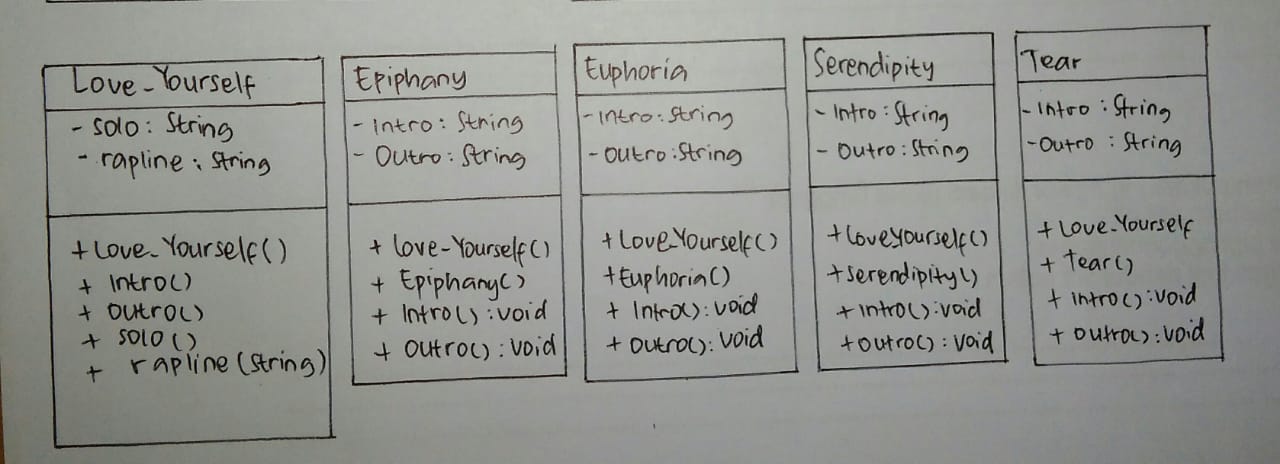 Love_Yourself
- solo : String
- rapline : String
+ Love_Yourself()
+ Intro()
+ Outro()
+ solo()
+ rapline (String)
Epiphany
- Intro : String
- Outro : String
+ Love-Yourself()
+ Epiphany()
+ Intro() : void
+ Outro() : void
Euphoria
- Intro : String
- Outro : String
+ Love_Yourself()
+ Euphoria()
+ Intro() : void
+ Outro() : void
Serendipity
- Intro : String
- Outro : String
+ LoveYourself()
+ Serendipity()
+ Intro() : void
+ Outro() : void
Tear
- Intro : String
- Outro : String
+ Love_Yourself
+ Tear()
+ Intro() : void
+ Outro() : void